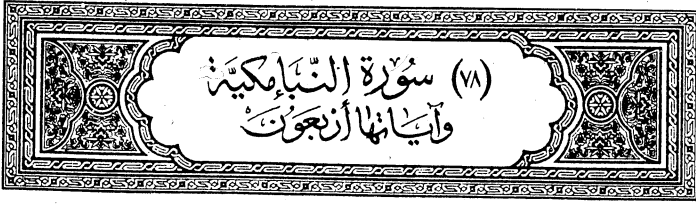 (٧٨) سُورَة النَّبَإِ مَكيَّة
وَآيَاتهَا أَرْبَعُونَ